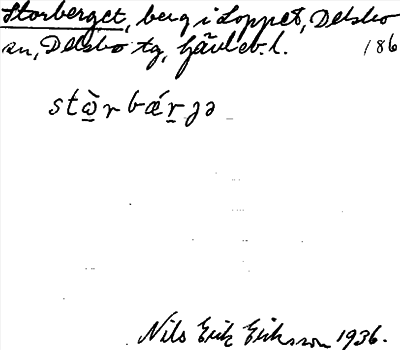 Storberget, berg i Loppet, Delsbo
sn, Delsbo tg, Gävleb. l. 186
stὼ̲r bǽr̲gə
Nils Erik Eriksson 1936.